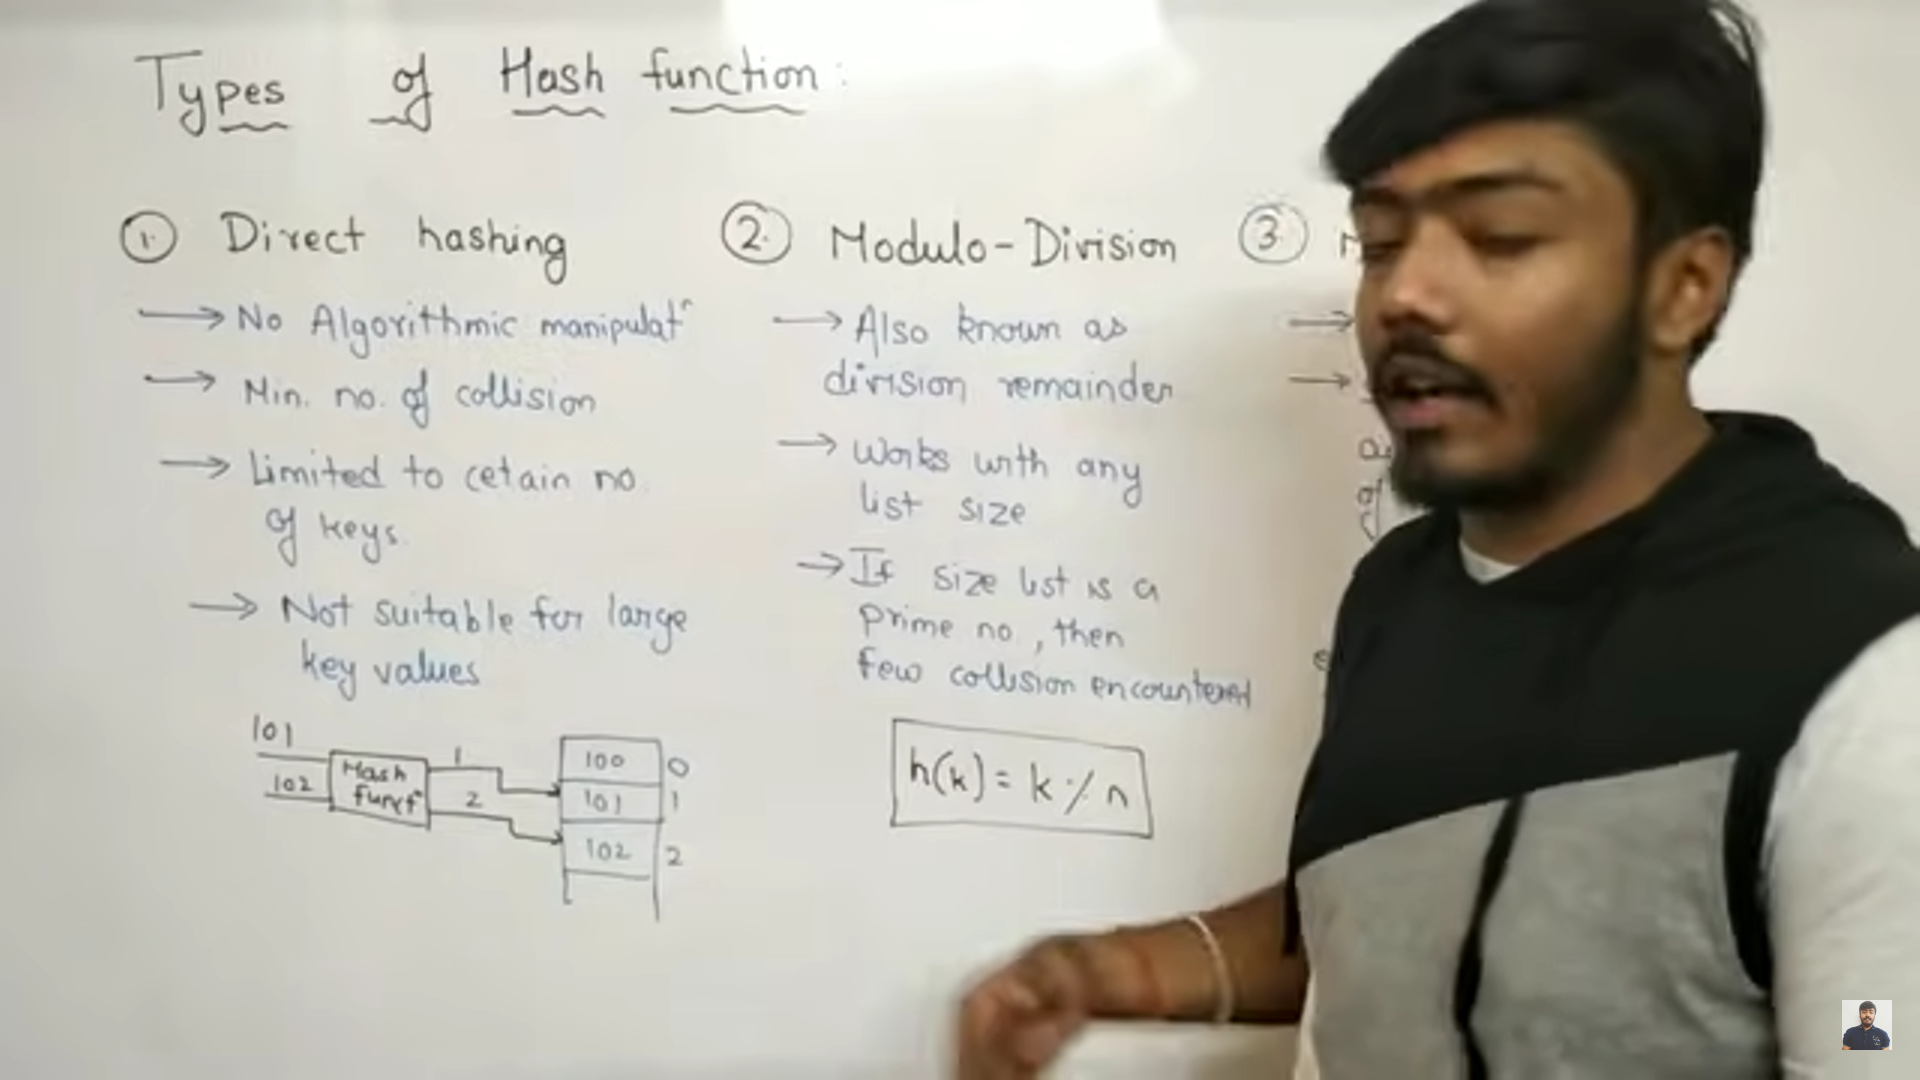 Types of Hash function:
1. Direct hashing
→ No Algorithmic manipulatⁿ
→ Min. no. of collision
→ Limited to cetain no.
of keys.
→ Not suitable for large
key values
101
102
Hash
functⁿ
1
2
100 0
101 1
102 2
2. Modulo-Division
→ Also known as
division remainder
→ Works with any
list size
→ If size list is a
prime no, then
few collision encountered
h(k) = k % n
3.
of